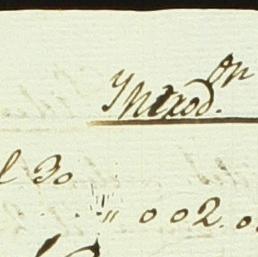 Introd.on
l Do
" 0 02. 0